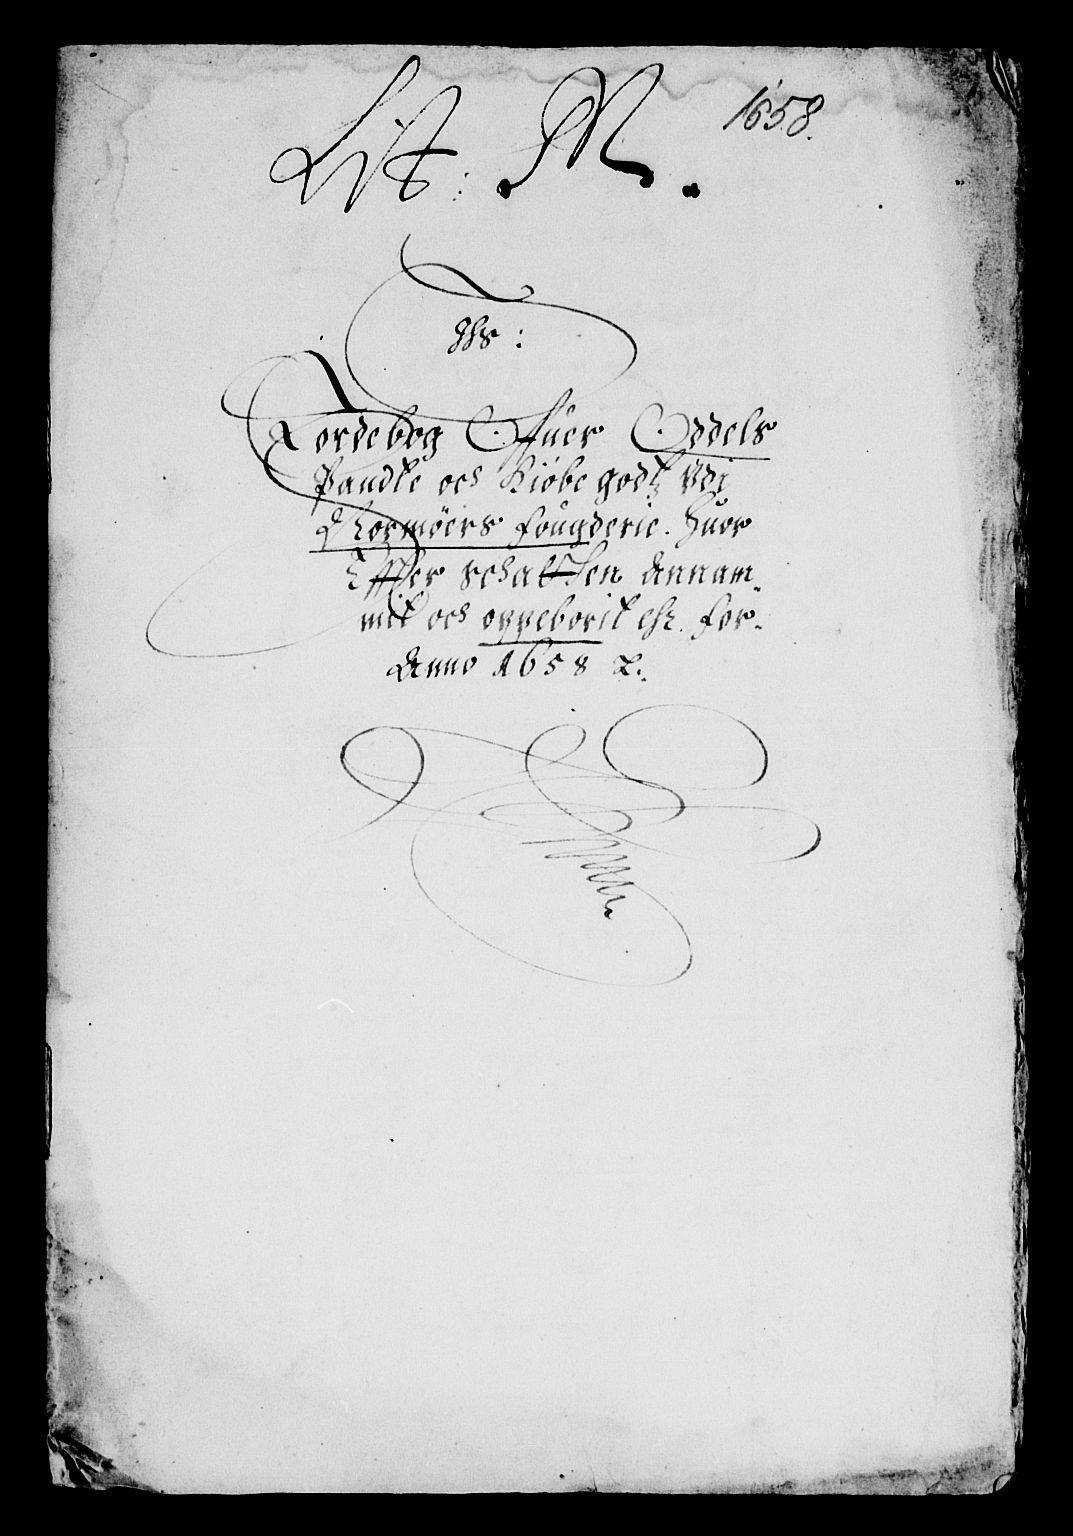 Lit: M. 1658.
Jhs:
Jordebog Offuer Oddels
Pandte och Kiøbe godtz Vdi
Normøers fougderie. Huor
Effter schatten Annam„
mit och oppeborit ehr. for„
Anno 1658 &c.